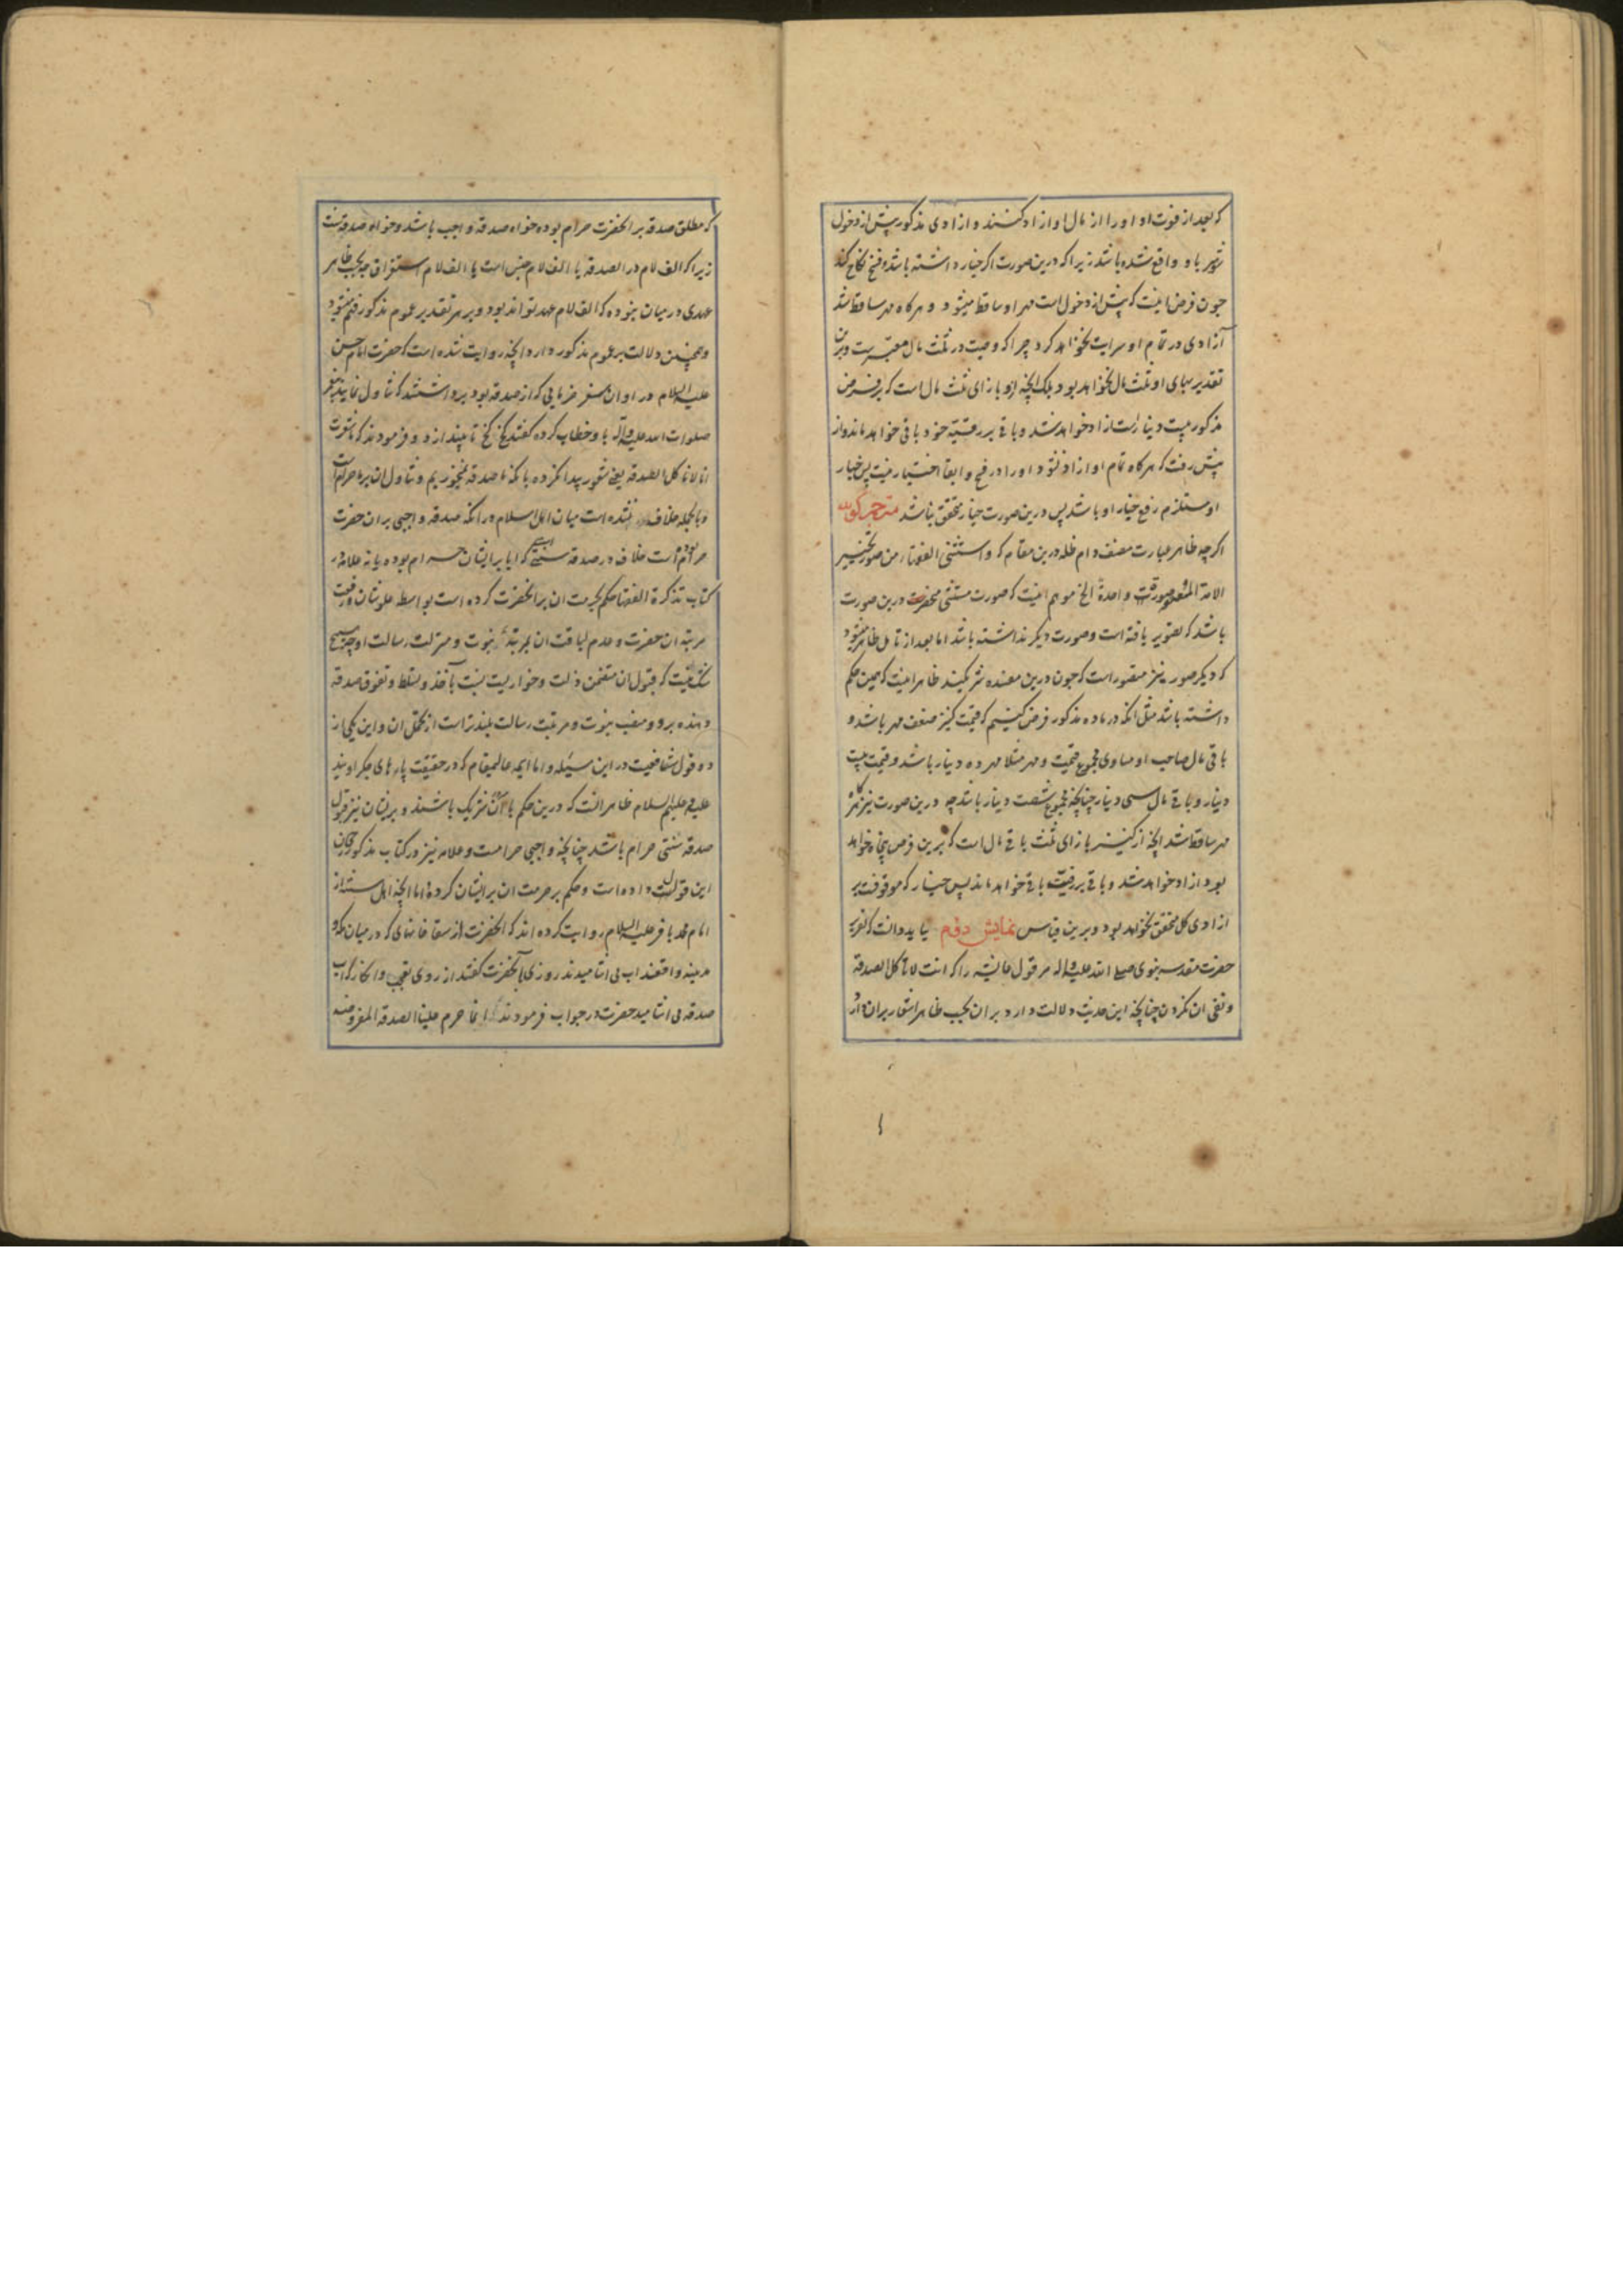 که بعد از فوت او او را از مال او ازاد کنند و ازادی مذکور پیش از دخول
شوهر باو واقع شده باشد زیرا که درین صورت اکر خیار داشته باشد و فسخ نکاح کند
چون فرض اینست که پیش از دخول است مهر او ساقط میشود و هرکاه مهر ساقط شد
آزادی در تمام او سرایت نخواهد کرد چرا که وصیت در ثلث مال معتبرست و برین
تقدیر بهای او ثلث مال نخواهد بود بلکه انچه ازو بازای ثلث مال است که بر فرض
مذکور بیست دینار است ازاد خواهد شد و باقی بر رقیّه خود باقی خواهد ماند و از
پیش رفت که هرکاه تمام او ازاد نشود او را در فسخ و ابقا اختیار نیست پس خیار
او مستلزم رفع خیار او باشد پس درین صورت خیار متحقق نباشد مترجم کوید
اکرچه ظاهر عبارت مصنف دام ظله درین مقام که و استثنی الفقهاء من صور تخییر
الامة المعتقة صورة واحدة الخ موهم اینست که صورت مستثنی منحصر درین صورت
باشد که تصویر یافته است و صورت دیکر نداشته باشد اما بعد از تامل ظاهر میشود
که دیکر صور نیز متصور است که چون درین مفسده شریکند ظاهر اینست که همین حکم
داشته باشد مثل انکه در ماده مذکور فرض کنیم که قیمت کنیز ضعف مهر باشد و
باقی مال صاحب او مساوی مجموع قیمت و مهر مثلا مهر ده دینار باشد و قیمت بیست
دینار و باقی مال سی دینار چنانچه مجموع شصت دینار باشد چه درین صورت نیز هرکاه
مهر ساقط شد انچه از کنیز بازای ثلث باقی مال است که برین فرض پنجاه خواهد
بود ازاد خواهد شد و باقی بر رقیّت باقی خواهد ماند پس خیار که موقوفست بر
ازادی کل متحقق نخواهد بود و برین قیاس نمایش دوم باید دانست که تقریر
حضرت مقدسه نبوی صلی الله علیه واله مر قول عایشه را که انت لا تاکل الصدقة
و نفی ان نکردن چنانچه این حدیث دلالت دارد بر ان بحسب ظاهر اشعار بران دارد
که مطلق صدقه بر انحضرت حرام بوده خواه صدقه واجب باشد و خواه صدقه سنت
زیرا که الف لام در الصدقه یا الف لام جنس است یا الف لام استغراق چه بحسب ظاهر
عهدی در میان نبوده که الف لام عهد تواند بود و بر هر تقدیر عموم مذکور فهم میشود
و همچنین دلالت بر عموم مذکور دارد انچه روایت شده است که حضرت امام حسن
علیه السلام در اوان صغر خرمایی که از صدقه بود برداشتند که تناول نمایند پیغمبر
صلوات الله علیه واله باو خطاب کرده کفتند کخ کخ تا بیندازد و فرمودند که اما شعرت
انا لا ناکل الصدقه یعنی شعور پیدا نکرده بانکه ما صدقه نمیخوریم و تناول ان بر ما حرام است
و بالجمله خلاف نشده است میان اهل اسلام در انکه صدقه واجبی بران حضرت
حرام بوده است خلاف در صدقه سنتی است که ایا بر ایشان حرام بوده یا نه علامه در
کتاب تذکرة الفقها حکم بحرمت ان بر انحضرت کرده است بواسطه علو شان و رفعت
مرتبه ان حضرت و عدم لیاقت ان بمرتبه نبوت و منزلت رسالت او چه هیچ
شک نیست که قبول ان متضمن ذلت و خواریست نسبت بآخذ و تسلط و تفوق صدقه
دهنده برو و منصب نبوت و مرتبت رسالت بلندتر است از تحمل ان و این یکی از
دو قول شافعیست در این مسئله و اما ایمه عالیمقام که در حقیقت پارهای جکر اویند
علیه و علیهم السلام ظاهر انست که درین حکم با آن شریک باشند و بر ایشان نیز قبول
صدقه سنتی حرام باشد چنانچه واجبی حرامست و علامه نیز در کتاب مذکور رجحان
این قول داده است و حکم بر حرمت ان بر ایشان کرده اما انچه اهل سنت از
امام محمد باقر علیه السلام روایت کرده اند که انحضرت از سقا خانهای که در میان مکه و
مدینه واقعند اب می اشامیدند روزی بآنحضرت کفتند از روی تعجب و انکار که اب
صدقه می اشامید حضرت در جواب فرمودند که انما حرم علینا الصدقه المفروضه